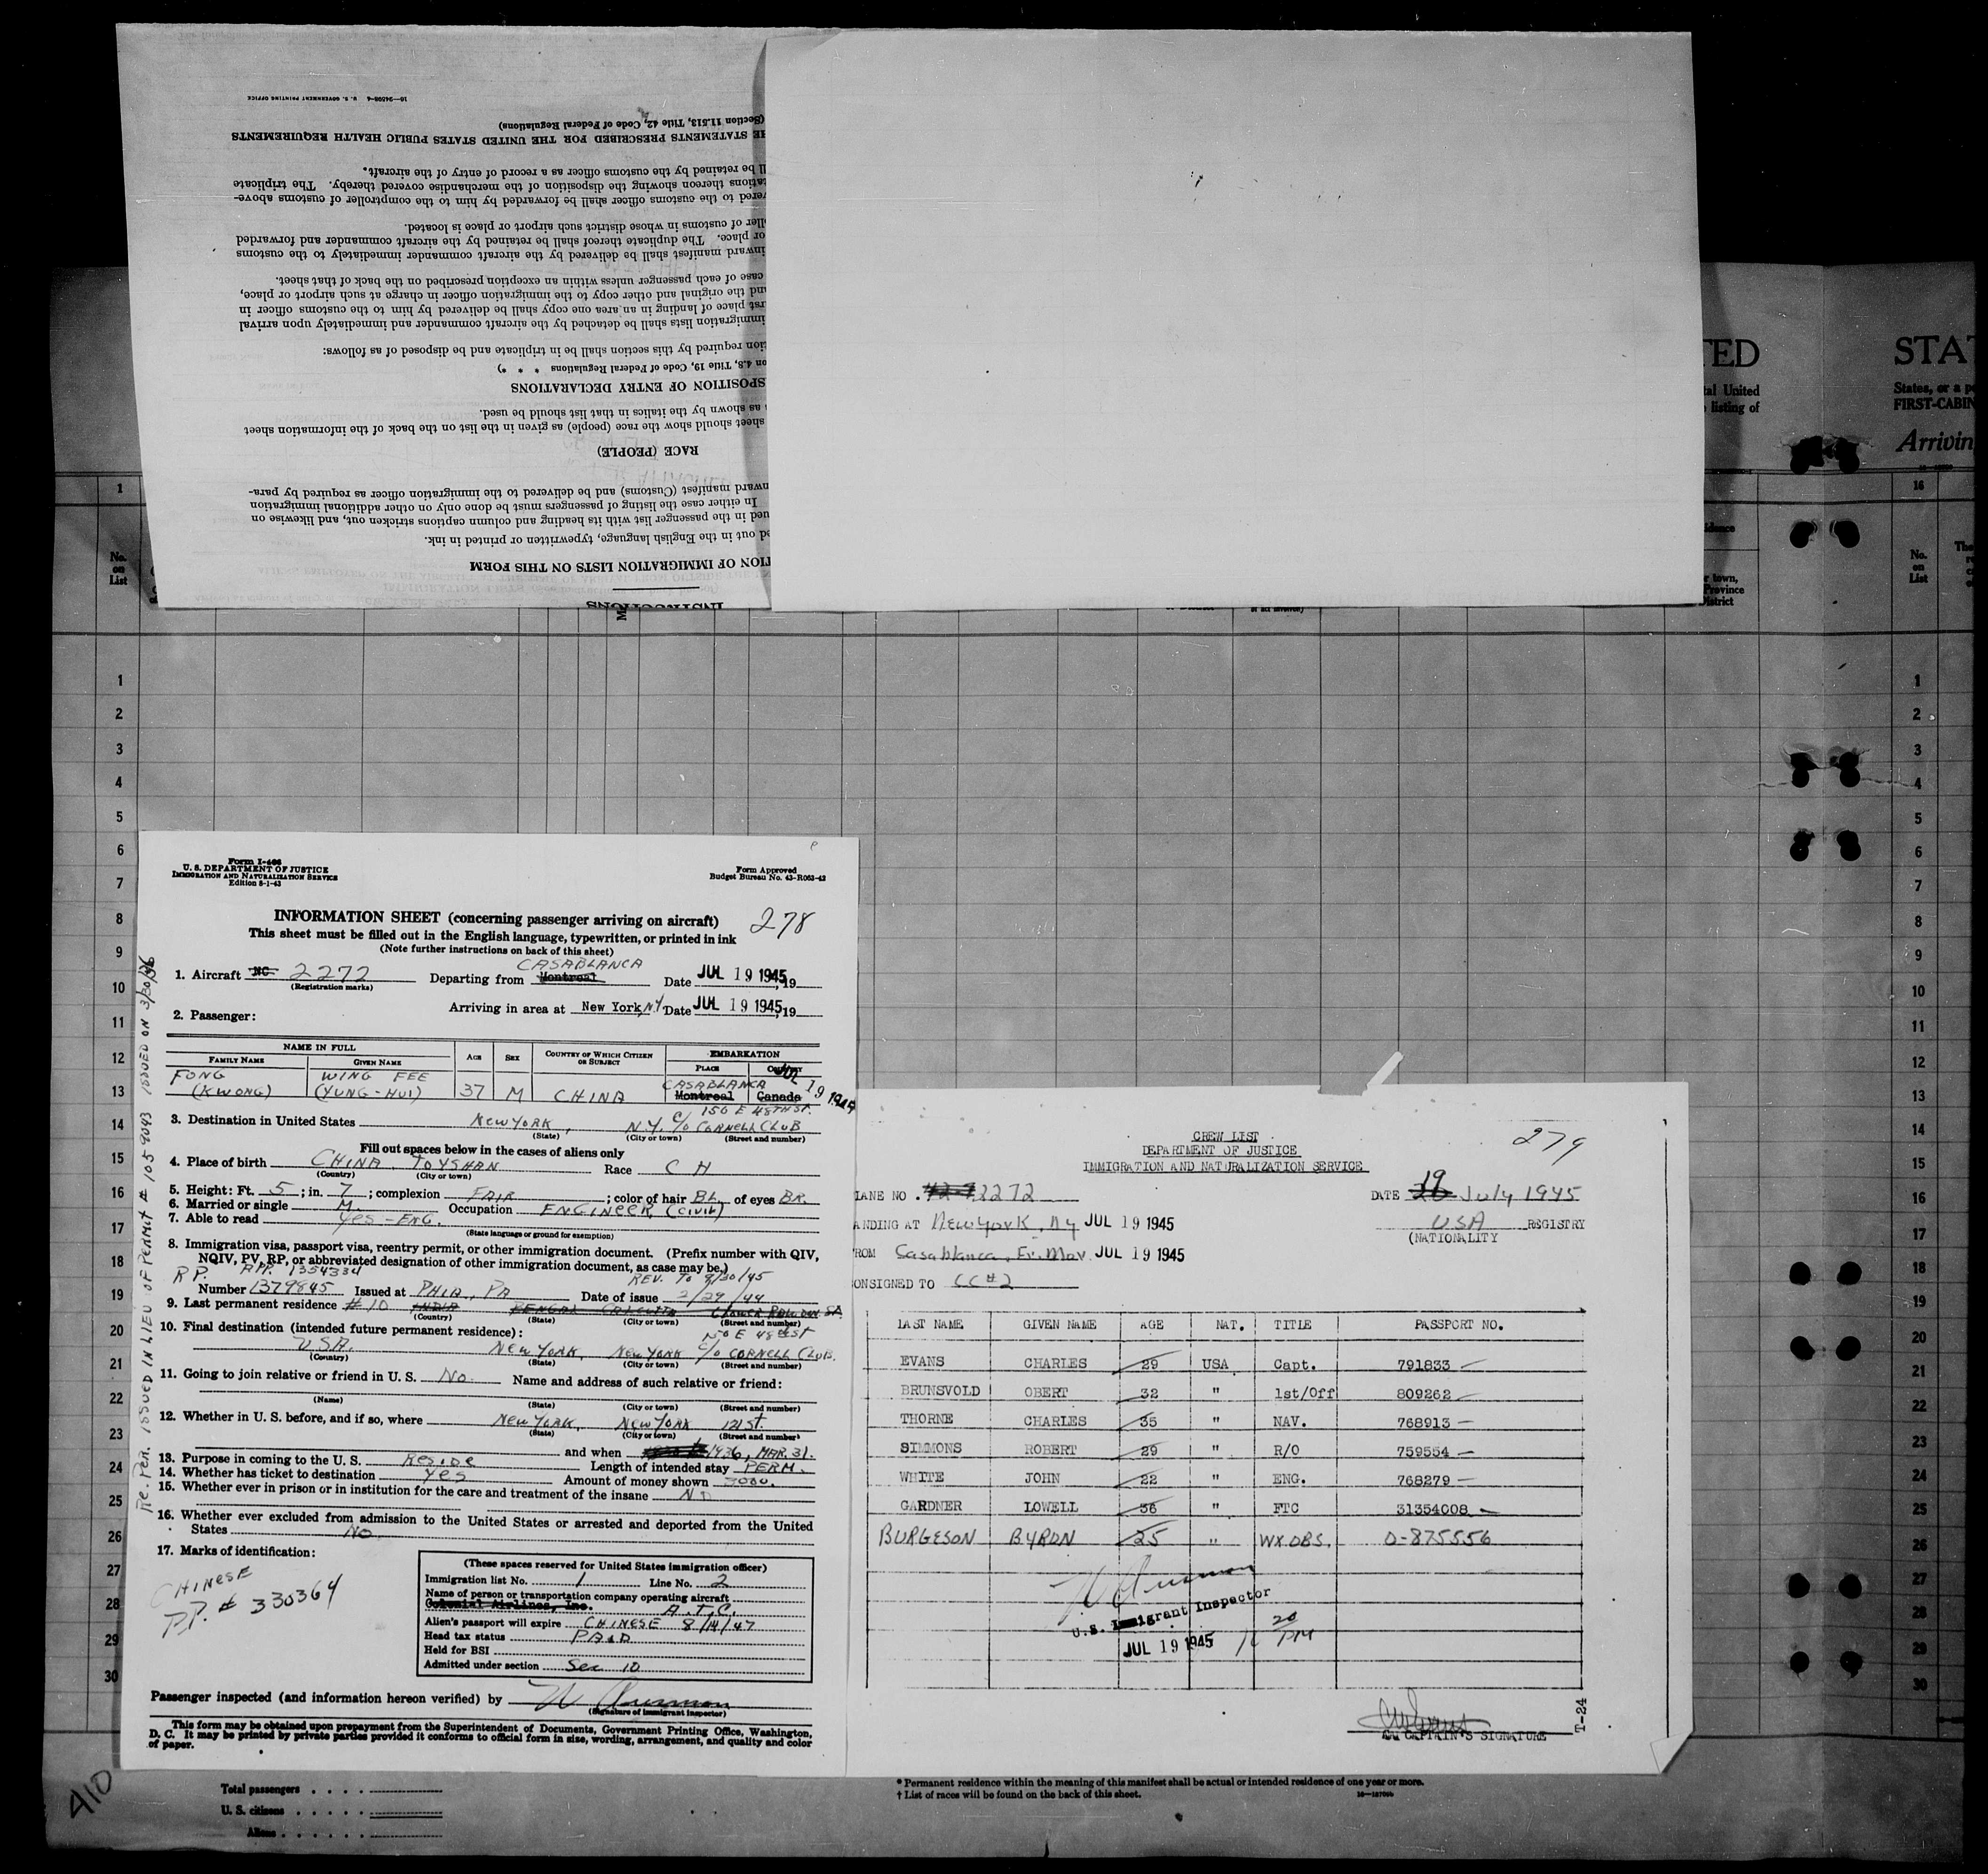 16—24598-4 U. S. GOVERNMENT PRINTING OFFICE
(Section 11.513, Title 42, Code of Federal Regulations)
HE STATEMENTS PRESCRIBED FOR THE UNITED STATES PUBLIC HEALTH REQUIREMENTS
ll be retained by the customs officer as a record of entry of the aircraft.
tations thereon showing the disposition of the merchandise covered thereby. The triplicate
vered to the customs officer shall be forwarded by him to the comptroller of customs above-
ller of customs in whose district such airport or place is located.
or place. The duplicate thereof shall be retained by the aircraft commander and forwarded
inward manifest shall be delivered by the aircraft commander immediately to the customs
case of each passenger unless within an exception prescribed on the back of that sheet.
and the original and other copy to the immigration officer in charge at such airport or place,
rst place of landing in an area one copy shall be delivered by him to the customs officer in
immigration lists shall be detached by the aircraft commander and immediately upon arrival
tion required by this section shall be in triplicate and be disposed of as follows:
on 4.8, Title 19, Code of Federal Regulations * * *)
SPOSITION OF ENTRY DECLARATIONS
as shown by the italics in that list should be used.
sheet should show the race (people) as given in the list on the back of the information sheet
RACE (PEOPLE)
nward manifest (Customs) and be delivered to the immigration officer as required by para-
In either case the listing of passengers must be done only on other additional immigration
ued in the passenger list with its heading and column captions stricken out, and likewise on
ed out in the English language, typewritten or printed in ink.
TION OF IMMIGRATION LISTS ON THIS FORM
INSTRUCTIONS
TED STAT
tal United States, or a po
listing of FIRST-CABIN
Arrivin
1 16
No. on List
r town, Province District
No. on List
1 1
2 2
3 3
4 4
5 5
6 6
7 7
8 8
9 9
10 10
11 11
12 12
13 13
14 14
15 15
16 16
17 17
18 18
19 19
20 20
21 21
22 22
23 23
24 24
25 25
26 26
27 27
28 28
29 29
30 30
Form I-466
U. S. DEPARTMENT OF JUSTICE
IMMIGRATION AND NATURALIZATION SERVICE
Edition 5-1-43
Form Approved
Budget Bureau No. 43-R063-42
INFORMATION SHEET (concerning passenger arriving on aircraft) 278
This sheet must be filled out in the English language, typewritten, or printed in ink
(Note further instructions on back of this sheet)
CASABLANCA
1. Aircraft NC 2272 Departing from Montreal Date JUL 19 1945, 19
(Registration marks)
Arriving in area at New York, N.Y. Date JUL 19 1945, 19
2. Passenger:
NAME IN FULL AGE SEX COUNTRY OF WHICH CITIZEN OR SUBJECT EMBARKATION
FAMILY NAME GIVEN NAME PLACE COUNTRY
JUL 19 1945
FONG WING FEE CASABLANCA
(KWONG) (YUNG-HUI) 37 M CHINA Montreal Canada
150 E 48TH ST.
3. Destination in United States NEW YORK, N.Y. C/O CORNELL CLUB
(State) (City or town) (Street and number)
Fill out spaces below in the cases of aliens only
4. Place of birth CHINA, TOYSHAN Race CH
(Country) (City or town)
5. Height: Ft. 5; in. 7; complexion FAIR; color of hair BL. of eyes BR.
6. Married or single M. Occupation ENGINEER (CIVIL)
7. Able to read YES - ENG.
(State language or ground for exemption)
8. Immigration visa, passport visa, reentry permit, or other immigration document. (Prefix number with QIV,
NQIV, PV, RP, or abbreviated designation of other immigration document, as case may be.)
R P. APP. 1354334 REV. TO 8/30/45
Number 1379845 Issued at PHILA, PA Date of issue 2/29/44
9. Last permanent residence #10 INDIA BENGAL CALCUTTA
(Country) (State) (City or town) (Street and number)
10. Final destination (intended future permanent residence): 150 E 48TH ST
U.S.A. NEW YORK, NEW YORK C/O CORNELL CLUB.
(Country) (State) (City or town) (Street and number)
11. Going to join relative or friend in U. S. NO. Name and address of such relative or friend:
(Name) (State) (City or town) (Street and number)
12. Whether in U. S. before, and if so, where NEW YORK, NEW YORK 121 St.
(State) (City or town) (Street and number)
and when 1936, MAR. 31.
13. Purpose in coming to the U. S. RESIDE Length of intended stay PERM.
14. Whether has ticket to destination YES Amount of money shown 3000.
15. Whether ever in prison or in institution for the care and treatment of the insane NO
16. Whether ever excluded from admission to the United States or arrested and deported from the United
States NO
17. Marks of identification:
CHINESE
P.P. # 330364
(These spaces reserved for United States immigration officer)
Immigration list No. 1 Line No. 2
Name of person or transportation company operating aircraft
Colonial Airlines, Inc. A.T.C.
Alien's passport will expire CHINESE 8/14/47
Head tax status PAID
Held for BSI
Admitted under section Sec 10
Passenger inspected (and information hereon verified) by
(Signature of immigrant inspector)
This form may be obtained upon prepayment from the Superintendent of Documents, Government Printing Office, Washington,
D. C. It may be printed by private parties provided it conforms to official form in size, wording, arrangement, and quality and color
of paper.
RE. PER. ISSUED IN LIEU OF PERMIT # 1059093 ISSUED ON 3/30/36
CREW LIST
DEPARTMENT OF JUSTICE
IMMIGRATION AND NATURALIZATION SERVICE
279
LANE NO. 2272 DATE 19 July 1945
ANDING AT New York, Ny JUL 19 1945 USA REGISTRY
(NATIONALITY
ROM Casablanca, Fr. Mor. JUL 19 1945
ONSIGNED TO CC#2
LAST NAME GIVEN NAME AGE NAT. TITLE PASSPORT NO.
EVANS CHARLES 29 USA Capt. 791833
BRUNSVOLD OBERT 32 " 1st/Off 809262
THORNE CHARLES 35 " NAV. 768913
SIMMONS ROBERT 29 " R/O 759554
WHITE JOHN 22 " ENG. 768279
GARDNER LOWELL 36 " FTC 31354008
BURGESON BYRON 25 " WX.OBS. O-875556
U.S. Immigrant Inspector
JUL 19 1945 11 20 PM
CAPTAIN'S SIGNATURE
T-24
410
Total passengers
U. S. citizens
Aliens
* Permanent residence within the meaning of this manifest shall be actual or intended residence of one year or more.
† List of races will be found on the back of this sheet.